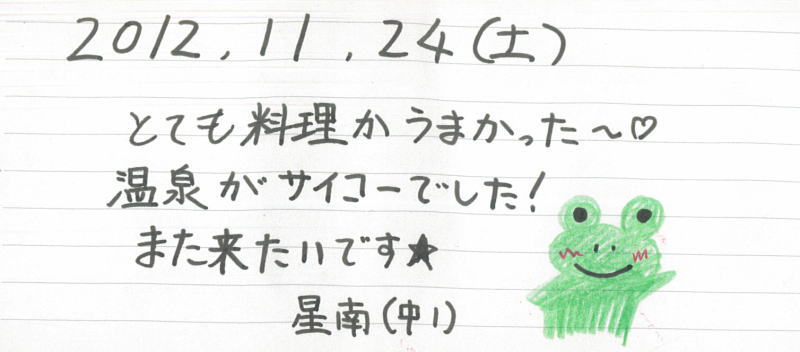 2012.11.24(土)
とても料理がうまかった～♡
温泉がサイコーでした!
また来たいです★
星南(中1)